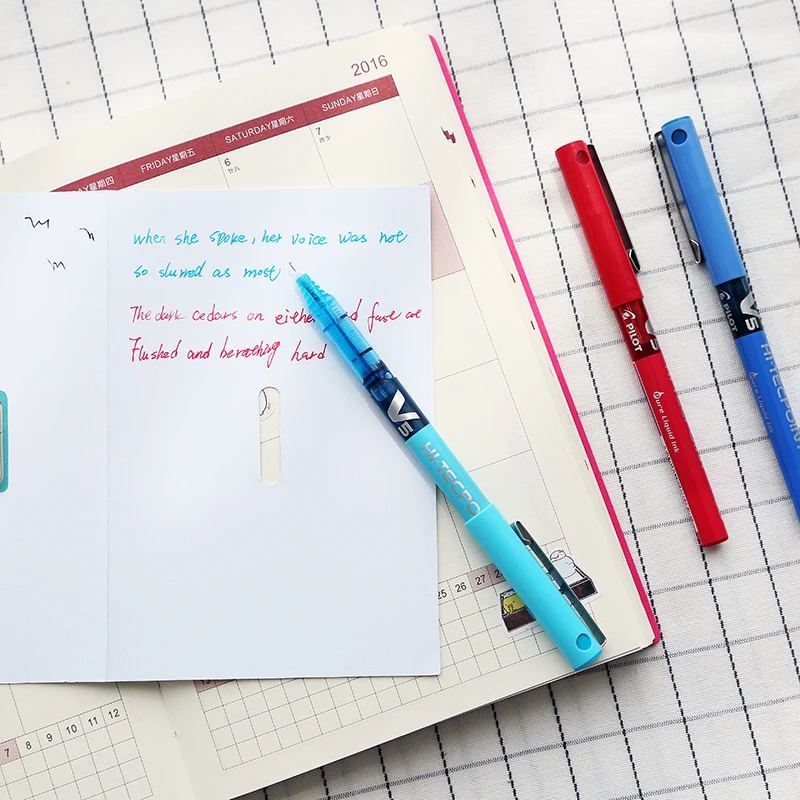 2016
四 FRIDAY星期五 SATURDAY星期六 SUNDAY星期日
6 7
廿八 除夕
when she spoke, her voice was not
so slurred as most
The dark cedars on eithe
Flushed and hard
V5
HI-TECPO
PILOT
V5
Pure Liquid Ink
PILOT
V5
HI-TECPOINT
Pure Liquid Ink
25 26 27
7 8 9 10 11 12